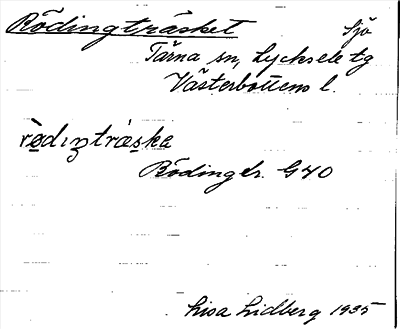 Rödingträsket Sjö
Tärna sn, Lycksele tg
Västerbottens l.
rödıŋtrȧska
Rödingtr. G40
Lisa Lidberg 1935